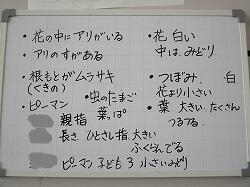 ・花の中にアリがいる
・アリのすがある
・根もとがムラサキ
(くきの)
・ピーマン
・虫のたまご
葉っぱ
親指
長さ、ひとさし指.大きい
ふくらんでる
ピーマン 子ども 3 小さい みどり
・花 白い
中は、みどり
・つぼみ、 白
花より小さい
・葉 大きい.たくさん
つるつる.